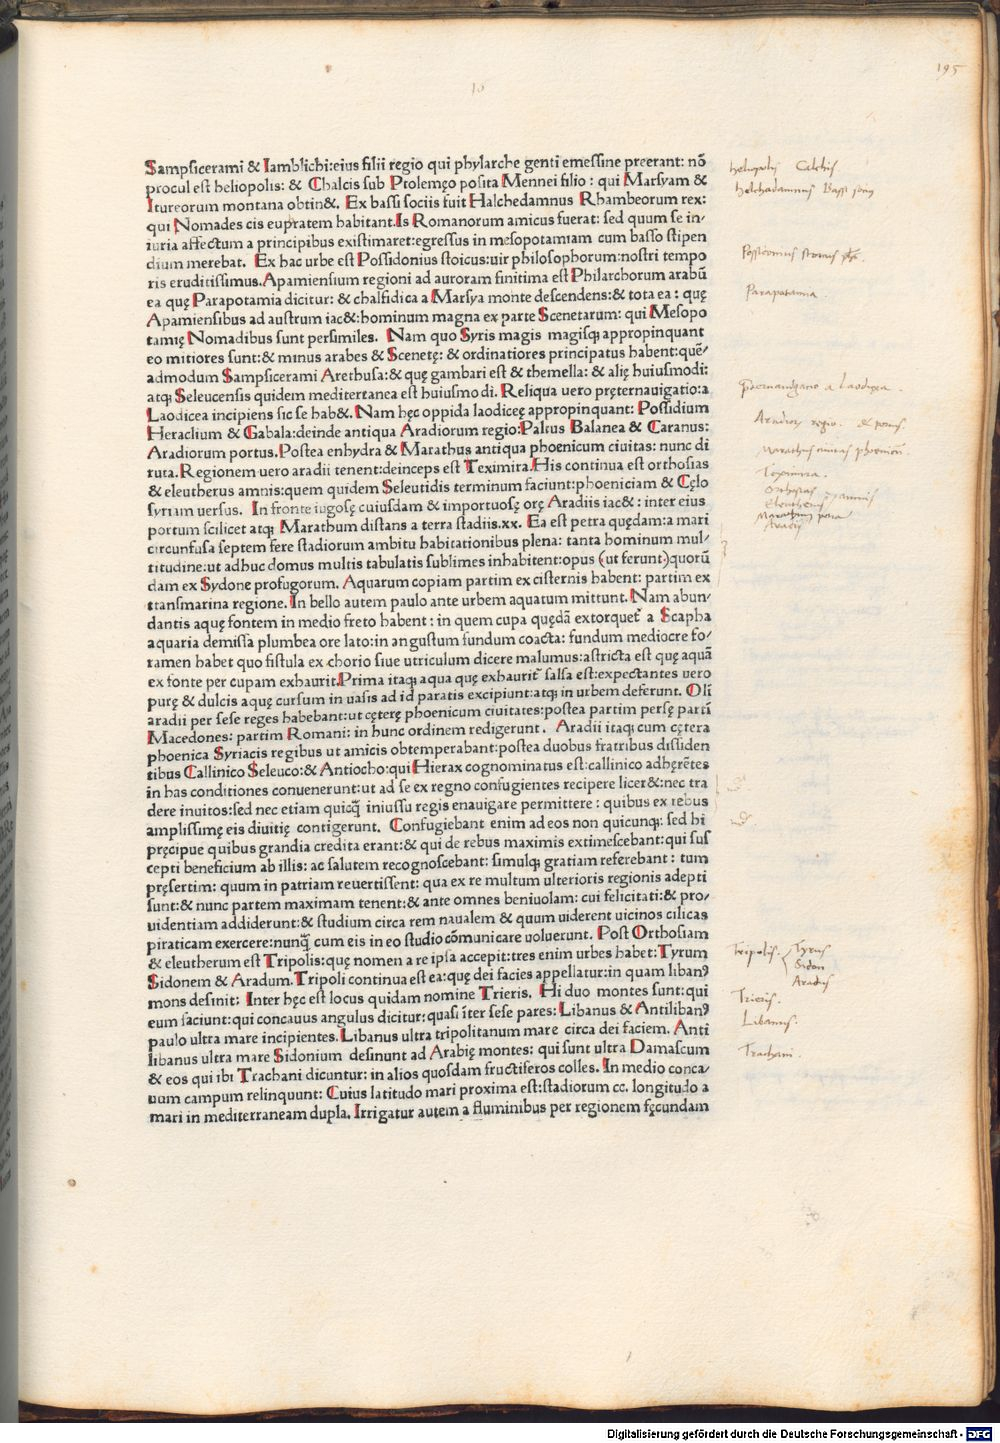 195
10
Sampsicerami & Iamblichi:eius filii regio qui phylarche genti emessine preerant: nō
procul est heliopolis: & Chalcis sub Ptolemęo posita Mennei filio : qui Marsyam &
Itureorum montana obtin&. Ex bassi sociis fuit Halchedamnus Rhambeorum rex:
qui Nomades cis eupratem habitant.Is Romanorum amicus fuerat: sed quum se in/
iuria affectum a principibus existimaret:egressus in mesopotamiam cum basso stipen
dium merebat. Ex hac urbe est Possidonius stoicus:uir philosophorum:nostri tempo
ris eruditissimus.Apamiensium regioni ad auroram finitima est Philarchorum arabū
ea quę Parapotamia dicitur: & chalsidica a Marsya monte descendens:& tota ea : quę
Apamiensibus ad austrum iac&:hominum magna ex parte Scenetarum: qui Mesopo
tamię Nomadibus sunt persimiles. Nam quo Syris magis magisqȝ appropinquant
eo mitiores sunt:& minus arabes & Scenetę: & ordinatiores principatus habent:quē/
admodum Sampsicerami Arethusa:& quę gambari est & themella: & alię huiusmodi:
atqȝ Seleucensis quidem mediterranea est huiusmodi. Reliqua uero pręternauigatio:a
Laodicea incipiens sic se hab&. Nam hęc oppida laodiceę appropinquant: Possidium
Heraclium & Gabala:deinde antiqua Aradiorum regio:Paltus Balanea & Caranus:
Aradiorum portus.Postea enhydra & Marathus antiqua phoenicum ciuitas: nunc di
ruta.Regionem uero aradii tenent:deinceps est Teximira.His continua est orthosias
& eleutherus amnis:quem quidem Seleutidis terminum faciunt:phoeniciam & Cęlo
syriam uersus. In fronte iugosę cuiusdam & importuosę orę Aradiis iac& : inter eius
portum scilicet atqȝ Marathum distans a terra stadiis.xx. Ea est petra quędam:a mari
circunfusa septem fere stadiorum ambitu habitationibus plena: tanta hominum mul/
titudine:ut adhuc domus multis tabulatis sublimes inhabitent:opus (ut ferunt)quorū
dam ex Sydone profugorum. Aquarum copiam partim ex cisternis habent: partim ex
transmarina regione.In bello autem paulo ante urbem aquatum mittunt.Nam abun/
dantis aquę fontem in medio freto habent : in quem cupa quędā extorquet² a Scapha
aquaria demissa plumbea ore lato:in angustum fundum coacta: fundum mediocre fo/
ramen habet quo fistula ex chorio siue utriculum dicere malumus:astricta est quę aquā
ex fonte per cupam exhaurit.Prima itaqȝ aqua quę exhaurit² salsa est:expectantes uero
purę & dulcis aquę cursum in uasis ad id paratis excipiunt:atqȝ in urbem deferunt. Oli
aradii per sese reges habebant:ut cęterę phoenicum ciuitates:postea partim persę partī
Macedones: partim Romani: in hunc ordinem redigerunt. Aradii itaqȝ cum cętera
phoenica Syriacis regibus ut amicis obtemperabant:postea duobus fratribus dissiden
tibus Callinico Seleuco:& Antiocho:qui Hierax cognominatus est:callinico adhęrētes
in has conditiones conuenerunt:ut ad se ex regno confugientes recipere licer&:nec tra
dere inuitos:sed nec etiam quicq̄ iniussu regis enauigare permittere : quibus ex rebus
amplissimę eis diuitię contigerunt. Confugiebant enim ad eos non quicunqȝ: sed hi
pręcipue quibus grandia credita erant:& qui de rebus maximis extimescebant:qui sus
cepti beneficium ab illis: ac salutem recognoscebant: simulqȝ gratiam referebant : tum
pręsertim: quum in patriam reuertissent: qua ex re multum ulterioris regionis adepti
sunt:& nunc partem maximam tenent:& ante omnes beniuolam: cui felicitati:& pro/
uidentiam addiderunt:& studium circa rem naualem & quum uiderent uicinos cilicas
piraticam exercere:nunq̄ cum eis in eo studio cōmunicare uoluerunt. Post Orthosiam
& eleutherum est Tripolis:quę nomen a re ipsa accepit:tres enim urbes habet:Tyrum
Sidonem & Aradum.Tripoli continua est ea:quę dei facies appellatur:in quam liban⁹
mons desinit: Inter hęc est locus quidam nomine Trieris. Hi duo montes sunt:qui
eum faciunt:qui concauus angulus dicitur:quasi īter sese pares: Libanus & Antiliban⁹
paulo ultra mare incipientes.Libanus ultra tripolitanum mare circa dei faciem. Anti
libanus ultra mare Sidonium desinunt ad Arabię montes: qui sunt ultra Damascum
& eos qui ibi Trachani dicuntur: in alios quosdam fructiferos colles. In medio conca/
uum campum relinquunt: Cuius latitudo mari proxima est:stadiorum cc. longitudo a
mari in mediterraneam dupla. Irrigatur autem a fluminibus per regionem fęcundam
heliopolis Calchis
Parapotamia.
a Laodicea.
Aradior̄ regio.
Teximira.
orthosias
amnis
Tripolis. Tyrus
Sidon
Aradus
Trieris.
Libanus.
Trachani.
Digitalisierung gefördert durch die Deutsche Forschungsgemeinschaft - DFG